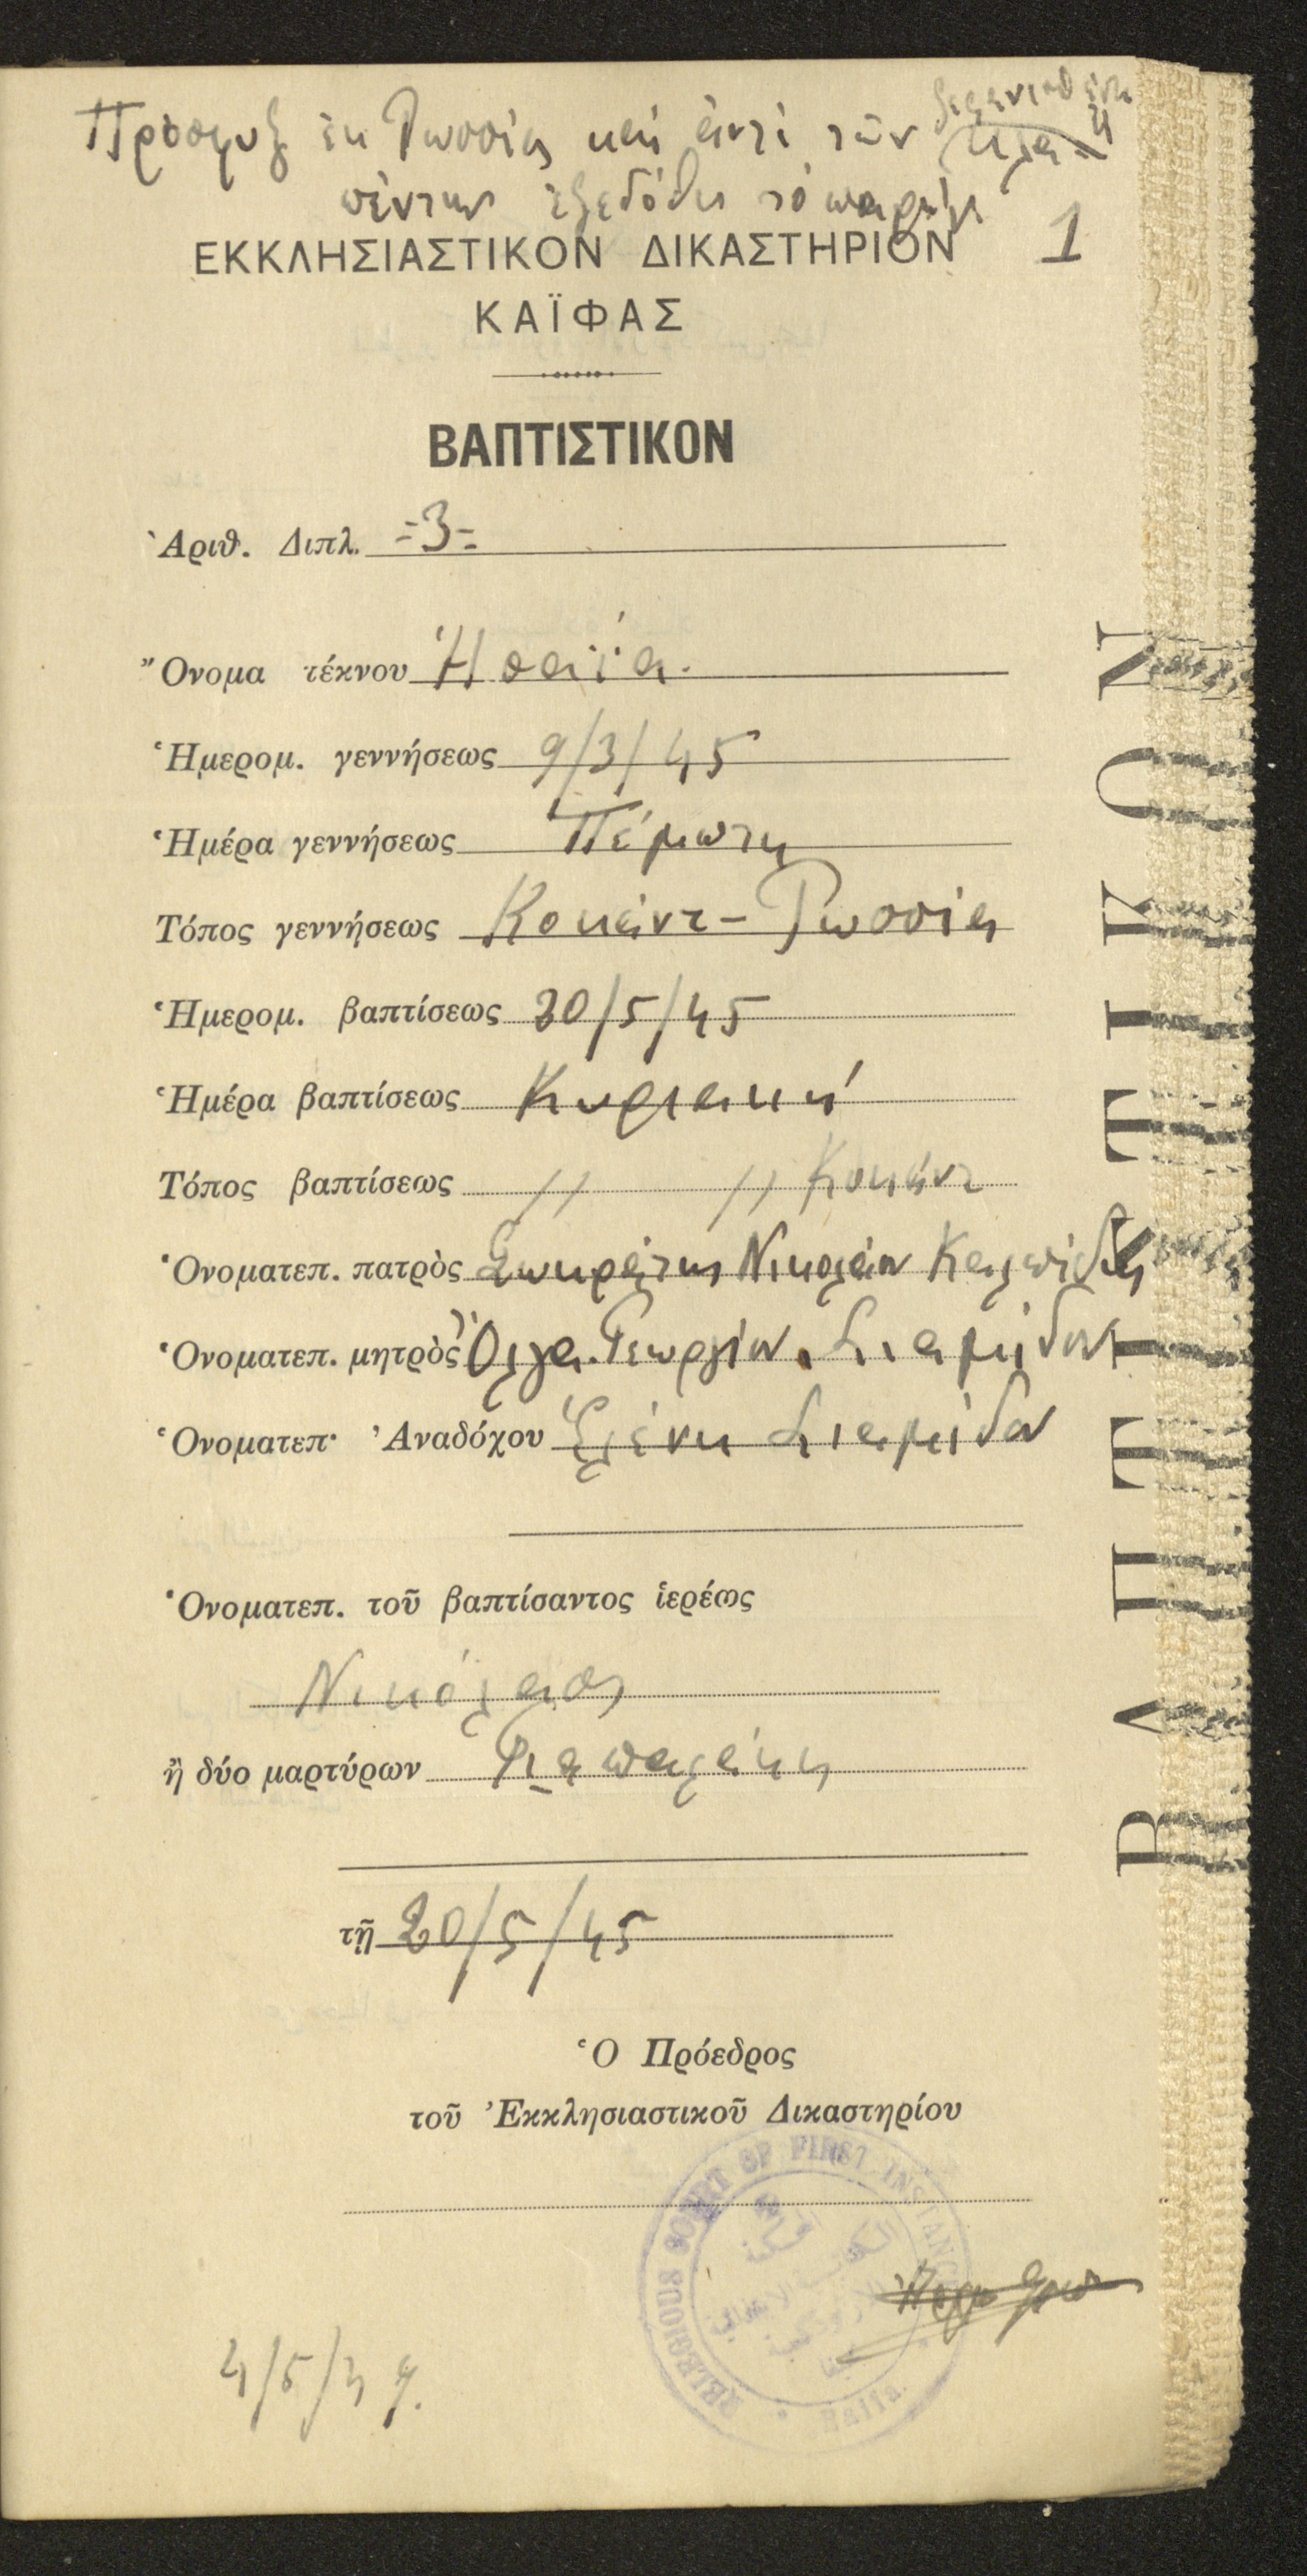 Πρόσφυξ ἐκ Ρωσσίας καί ἀντί τῶν
ἐξεδόθη τό παρόν
1
ΕΚΚΛΗΣΙΑΣΤΙΚΟΝ ΔΙΚΑΣΤΗΡΙΟΝ
ΚΑΪΦΑΣ
ΒΑΠΤΙΣΤΙΚΟΝ
Ἀριθ. Διπλ. =3=
Ὄνομα τέκνου Ἡσαΐα.
Ἡμερομ. γεννήσεως 9/3/45
Ἡμέρα γεννήσεως Πέμπτη
Τόπος γεννήσεως Κοκάντ - Ρωσσία
Ἡμερομ. βαπτίσεως 30/5/45
Ἡμέρα βαπτίσεως Κυριακή
Τόπος βαπτίσεως // // Κοκάντ
Ὀνοματεπ. πατρὸς Σωκράτης Νικολάου Καλπίδης
Ὀνοματεπ. μητρὸς Ὄλγα Γεωργίου Σιαμίδου
Ὀνοματεπ· Ἀναδόχου Ἑλένη Σιαμίδου
Ὀνοματεπ. τοῦ βαπτίσαντος ἱερέως
Νικόλαος
ἢ δύο μαρτύρων
τῇ 20/5/45
Ὁ Πρόεδρος
τοῦ Ἐκκλησιαστικοῦ Δικαστηρίου
RELIGIOUS COURT OF FIRST INSTANCE
Haifa
4/5/49.
ΒΑΠΤΙΣΤΙΚΟΝ